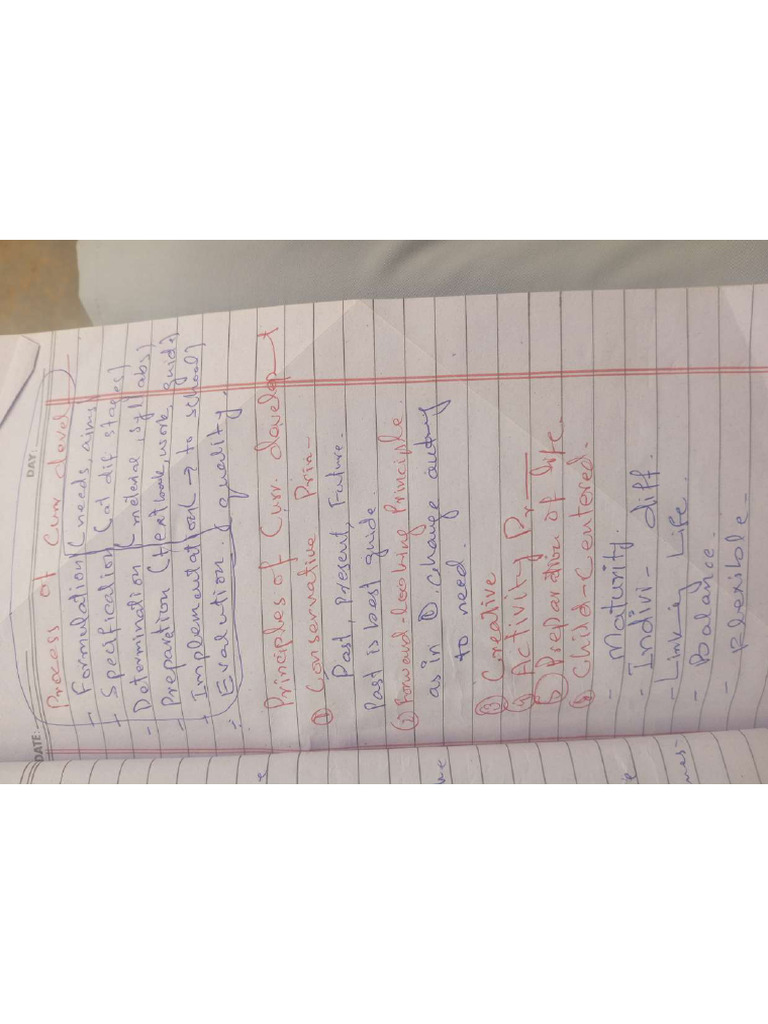 DATE:
DAY:
Process of Curr devel
- Formulation (needs, aims)
- Specification (at dif stages)
- Determination (material, syllabs)
- Preparation (textbook, work, guide)
- Implementation (→ to school)
- Evalution quality.
Principles of Curr. develop t
① Conservative Prin-
Past, Present, Future.
Past is best guide.
② Forward-looking Principle.
as in ①. change
to need.
③ Creative
④ Activity Pr
⑤ Preparation of life
⑥ Child-Centered.
- Maturity.
- Indivi- diff.
- Linking Life.
- Balance.
- Flexible-